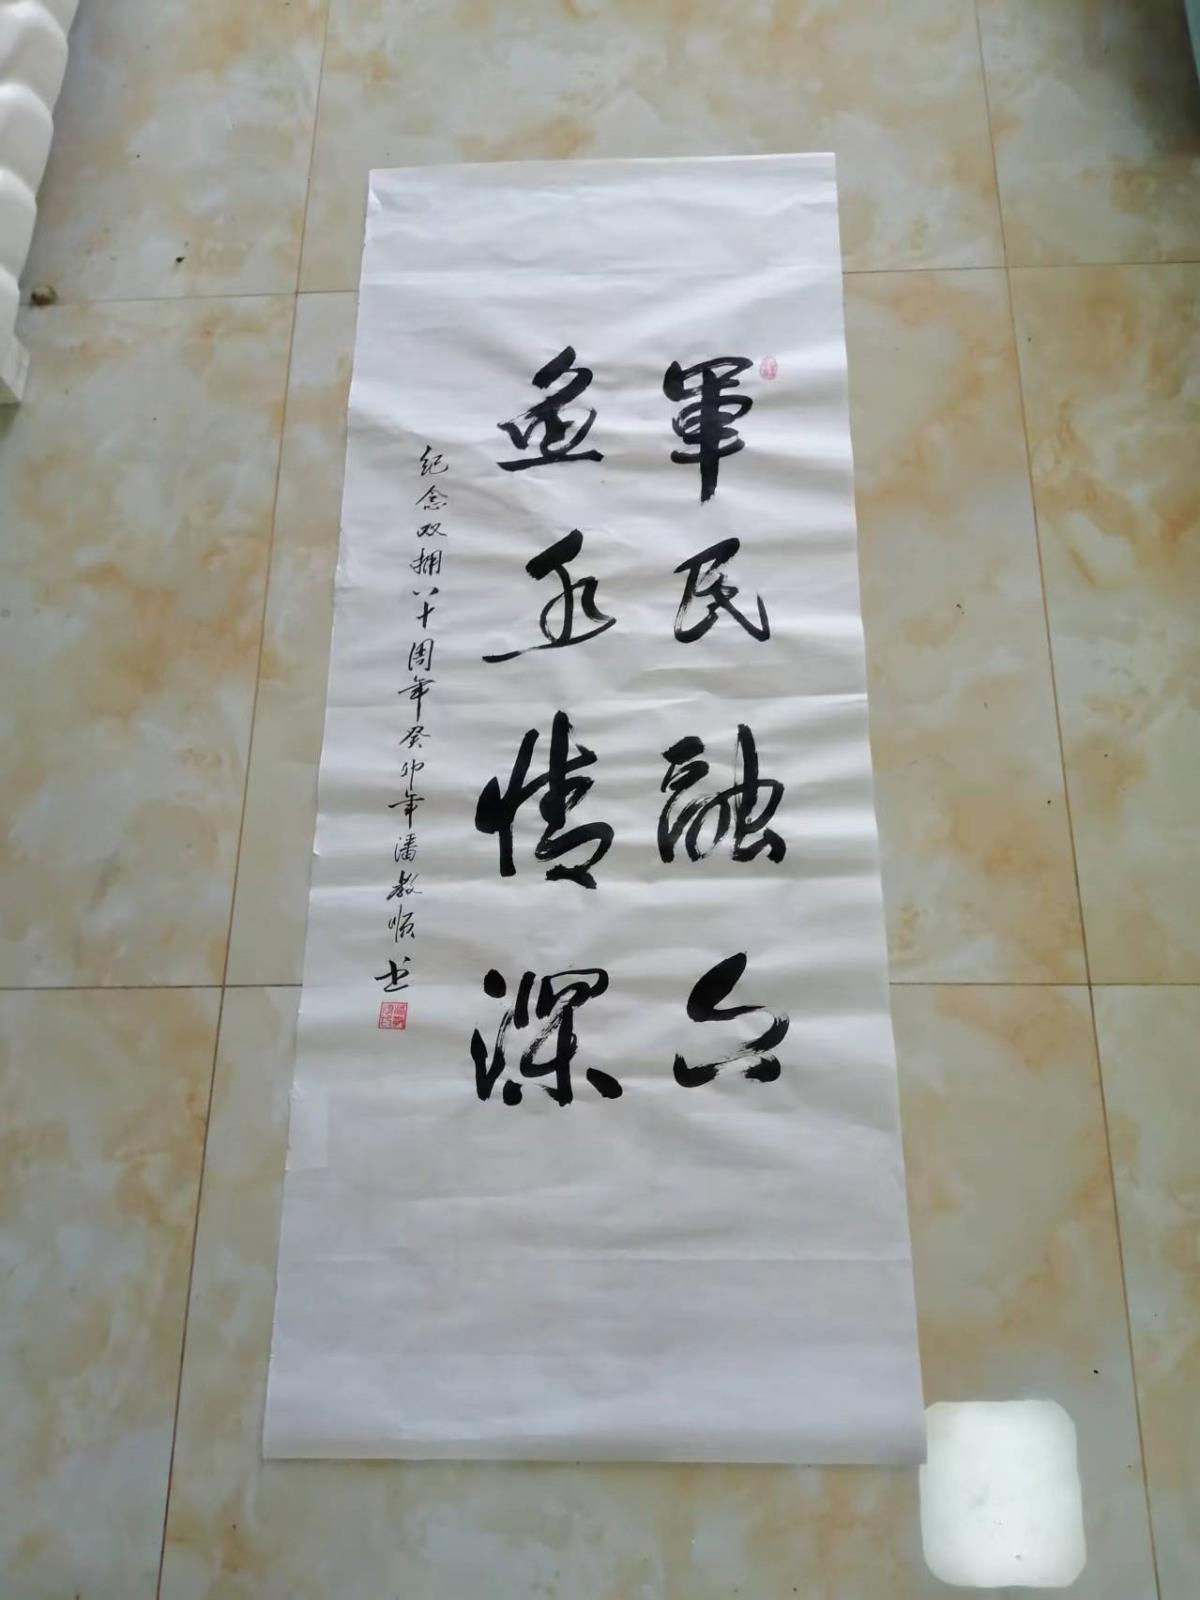 軍民融合
魚水情深
纪念双拥八十周年癸卯年潘教顺书